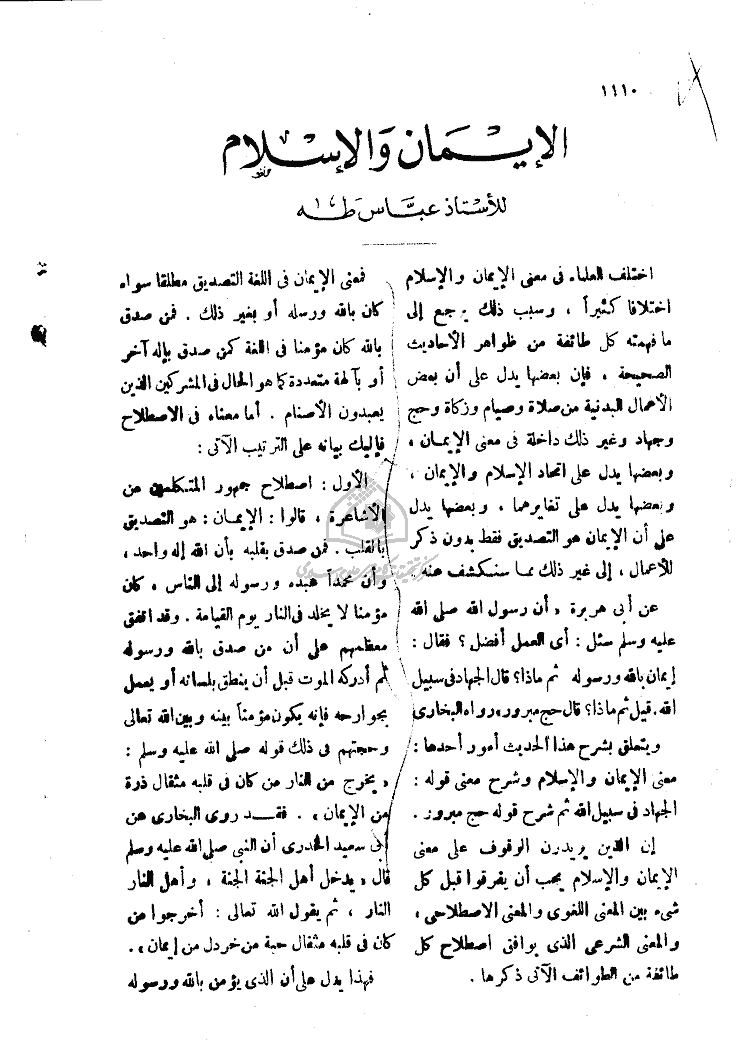 ١٤١٠
الإيمان والإسلام
للأستاذ عباس طه
اختلف العلماء فى معنى الإيمان والإسلام
اختلافا كثيراً ، وسبب ذلك يرجع إلى
ما فهمته كل طائفة من ظواهر الأحاديث
الصحيحة ، فإن بعضها يدل على أن بعض
الأعمال البدنية من صلاة وصيام وزكاة وحج
وجهاد وغير ذلك داخلة فى معنى الإيمان ،
وبعضها يدل على اتحاد الإسلام والإيمان ،
وبعضها يدل على تغايرهما ، وبعضها يدل
على أن الإيمان هو التصديق فقط بدون ذكر
للأعمال ، إلى غير ذلك مما سنكشف عنه .
عن أبى هريرة ، أن رسول الله صلى الله
عليه وسلم سئل : أى العمل أفضل ؟ فقال :
إيمان بالله ورسوله ثم ماذا؟ قال الجهاد فى سبيل
الله. قيل ثم ماذا؟ قال حج مبرور» رواه البخارى
ويتعلق بشرح هذا الحديث أمور أحدها :
معنى الإيمان والإسلام وشرح معنى قوله :
الجهاد فى سبيل الله ثم شرح قوله حج مبرور .
إن الذين يريدون الوقوف على معنى
الإيمان والإسلام يجب أن يفرقوا قبل كل
شىء بين المعنى اللغوى والمعنى الاصطلاحى ،
والمعنى الشرعى الذى يوافق اصطلاح كل
طائفة من الطوائف الآتى ذكرها .
فمعنى الإيمان فى اللغة التصديق مطلقا سواء
كان بالله ورسله أو بغير ذلك . فمن صدق
بالله كان مؤمنا فى اللغة كمن صدق بإله آخر
أو بآلهة متعددة كما هو الحال فى المشركين الذين
يعبدون الأصنام . أما معناه فى الاصطلاح
فإليك بيانه على الترتيب الآتى :
الأول : اصطلاح جمهور المتكلمين من
الأشاعرة ، قالوا : الإيمان : هو التصديق
بالقلب . فمن صدق بقلبه بأن الله إله واحد ،
وأن محمداً عبده ورسوله إلى الناس ، كان
مؤمنا لا يخلد فى النار يوم القيامة . وقد اتفق
معظمهم على أن من صدق بالله ورسوله
ثم أدركه الموت قبل أن ينطق بلسانه أو يعمل
بجوارحه فإنه يكون مؤمناً بينه وبين الله تعالى
وحجتهم فى ذلك قوله صلى الله عليه وسلم :
« يخرج من النار من كان فى قلبه مثقال ذرة
من الإيمان » . فقد روى البخارى عن
أبى سعيد الخدرى أن النبى صلى الله عليه وسلم
قال « يدخل أهل الجنة الجنة ، وأهل النار
النار ، ثم يقول الله تعالى : أخرجوا من
كان فى قلبه مثقال حبة من خردل من إيمان » .
فهذا يدل على أن الذى يؤمن بالله ورسوله